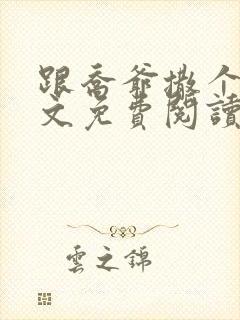 跟喬爺撒个
文免費閱讀
雲之錦